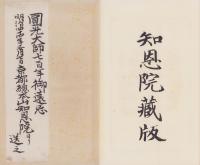 知恩院藏版
圓光大師七百年御遠忌
明治四十四年三月吉日京都總本山知恩院ヨリ
送之